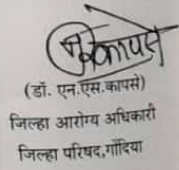 (डॉ. एन.एस.कापसे)
जिल्हा आरोग्य अधिकारी
जिल्हा परिषद,गोंदिया